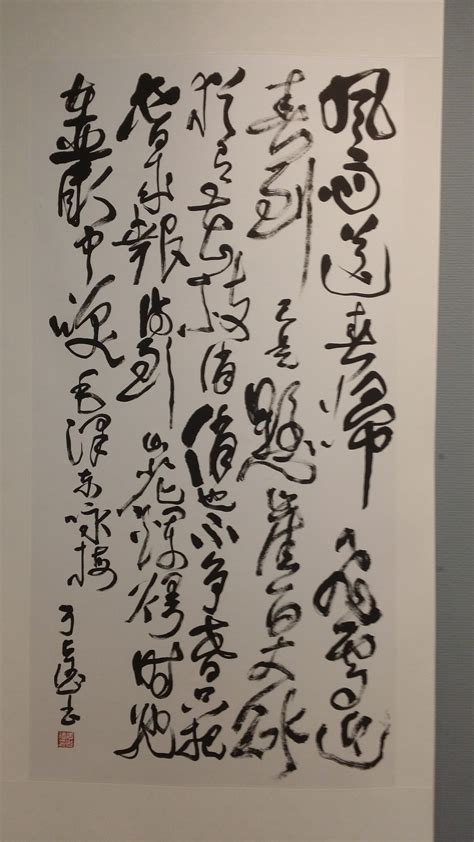 風雨送春归飛雪迎
春到已是懸崖百丈冰
犹有花枝俏俏也不争春只把
春来報待到山花爛漫時她
在叢中咲毛澤东咏梅
书